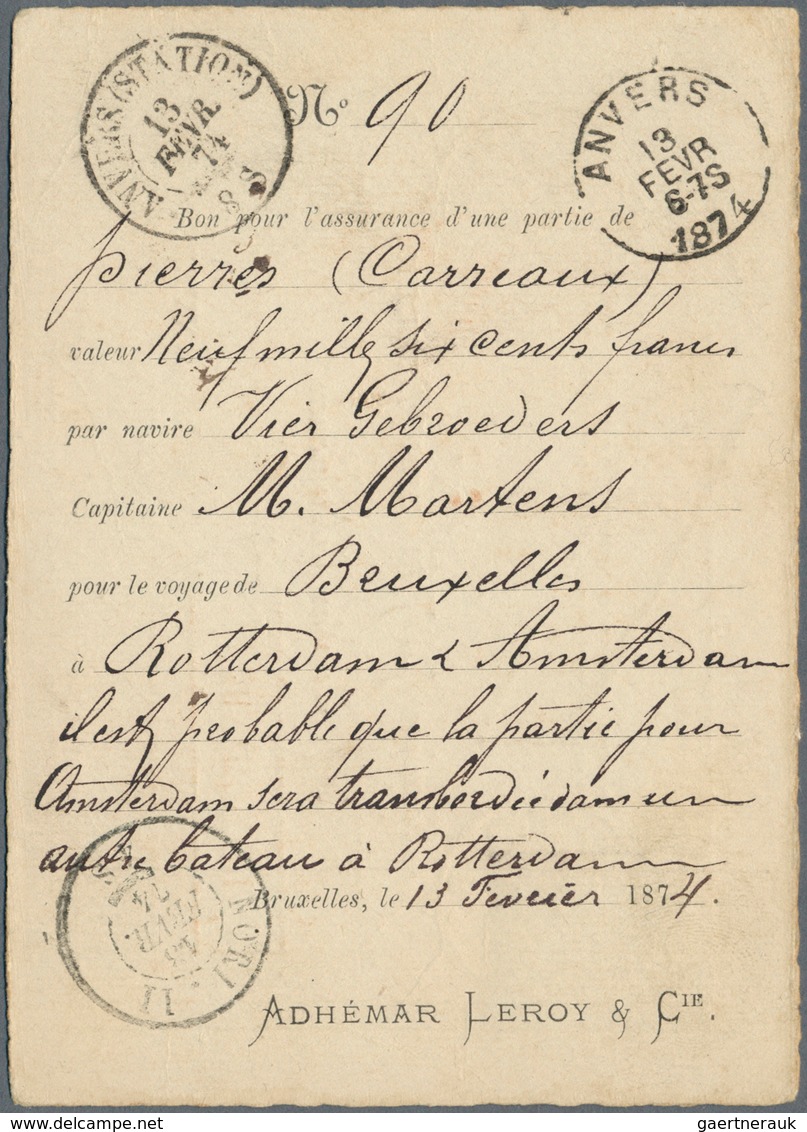 ANVERS (STATION)
13
FÉVR
74
8 S
ANVERS
13
FEVR
6-7S
1874
No 90
Bon pour l'assurance d'une partie de
pierres (Carreaux)
valeur Neuf mille six cents francs
par navire Vier Gebroeders
Capitaine M. Martens
pour le voyage de Bruxelles
à Rotterdam & Amsterdam
il est probable que la partie pour
Amsterdam sera transbordée dans un
autre bateau à Rotterdam
Bruxelles, le 13 Fevrier 1874.
13
FEVR.
74
ADHÉMAR LEROY & CIE.
gaertnerauk